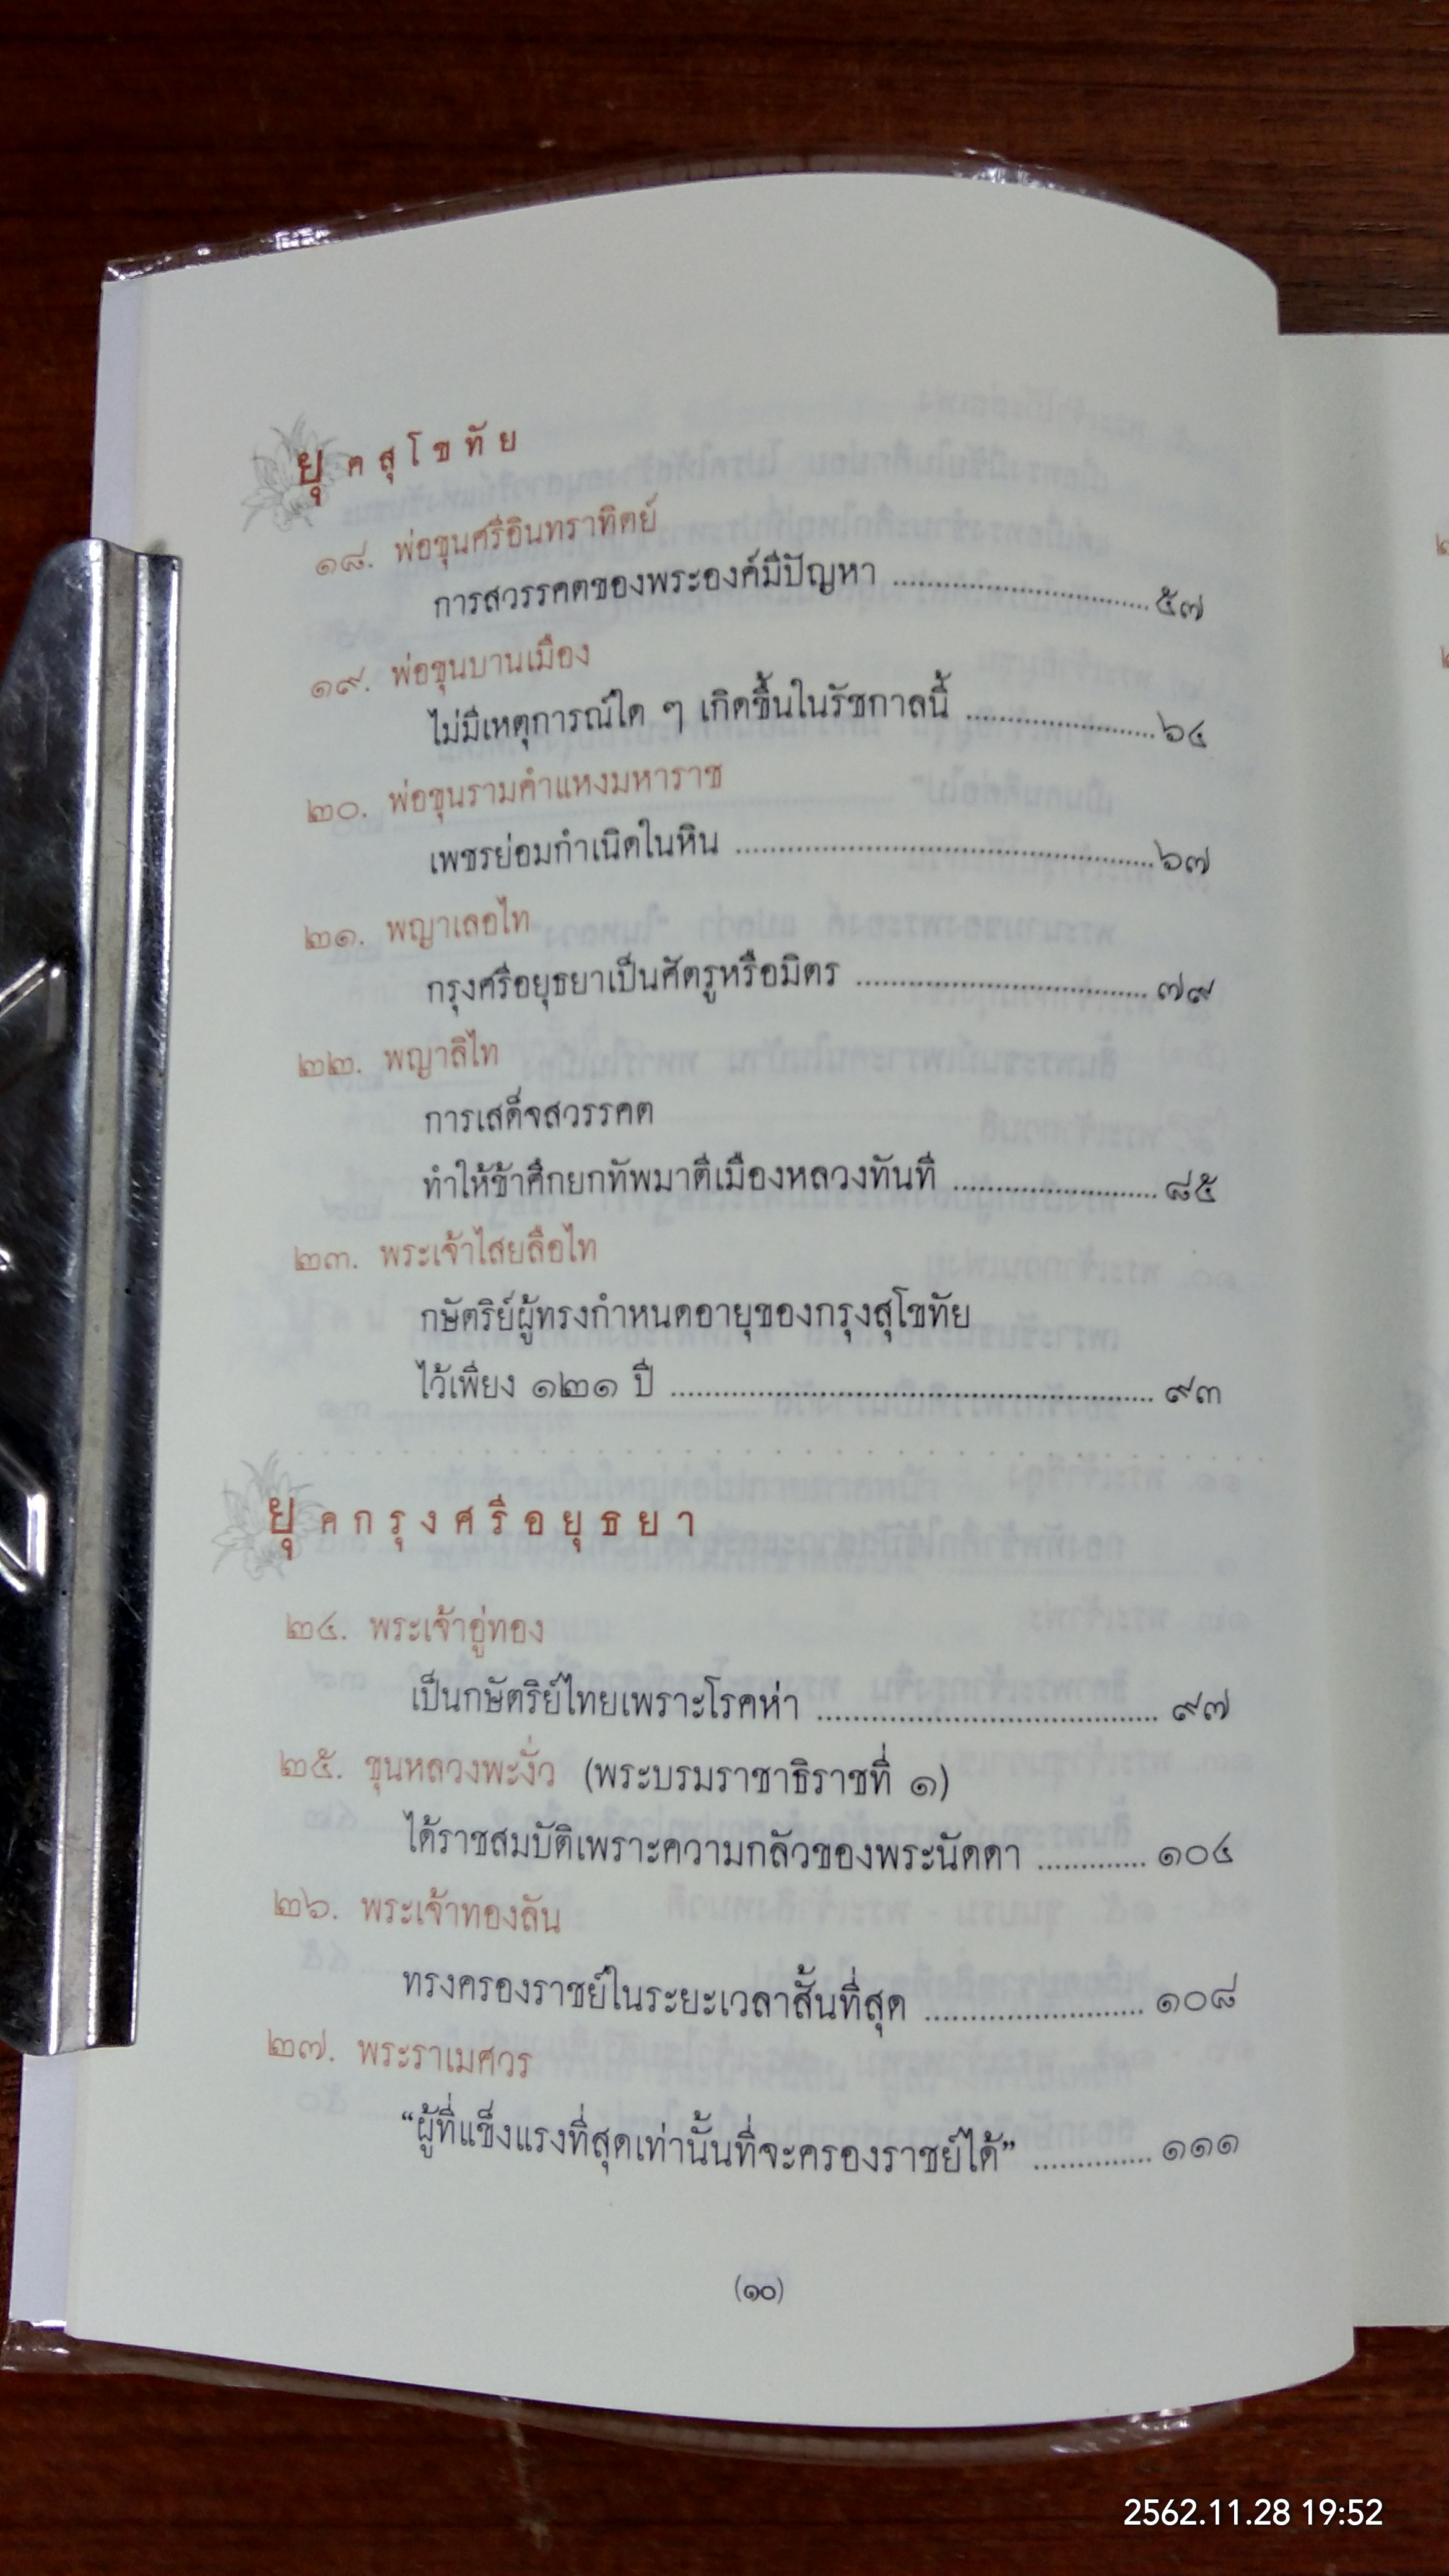 ยุคสุโขทัย
๑๘. พ่อขุนศรีอินทราทิตย์
การสวรรคตของพระองค์มีปัญหา ........................................ ๕๗
๑๙. พ่อขุนบานเมือง
ไม่มีเหตุการณ์ใด ๆ เกิดขึ้นในรัชกาลนี้ .............................. ๖๔
๒๐. พ่อขุนรามคำแหงมหาราช
เพชรย่อมกำเนิดในหิน ................................................................ ๖๗
๒๑. พญาเลอไท
กรุงศรีอยุธยาเป็นศัตรูหรือมิตร ............................................. ๗๙
๒๒. พญาลิไท
การเสด็จสวรรคต
ทำให้ข้าศึกยกทัพมาตีเมืองหลวงทันที ................................ ๘๕
๒๓. พระเจ้าไสยลือไท
กษัตริย์ผู้ทรงกำหนดอายุของกรุงสุโขทัย
ไว้เพียง ๑๒๑ ปี .......................................................................... ๙๓
ยุคกรุงศรีอยุธยา
๒๔. พระเจ้าอู่ทอง
เป็นกษัตริย์ไทยเพราะโรคห่า .................................................... ๙๗
๒๕. ขุนหลวงพะงั่ว (พระบรมราชาธิราชที่ ๑)
ได้ราชสมบัติเพราะความกลัวของพระนัดดา ................. ๑๐๔
๒๖. พระเจ้าทองลัน
ทรงครองราชย์ในระยะเวลาสั้นที่สุด .................................. ๑๐๘
๒๗. พระราเมศวร
“ผู้ที่แข็งแรงที่สุดเท่านั้นที่จะครองราชย์ได้” .................. ๑๑๑
(๑๐)
2562.11.28 19:52